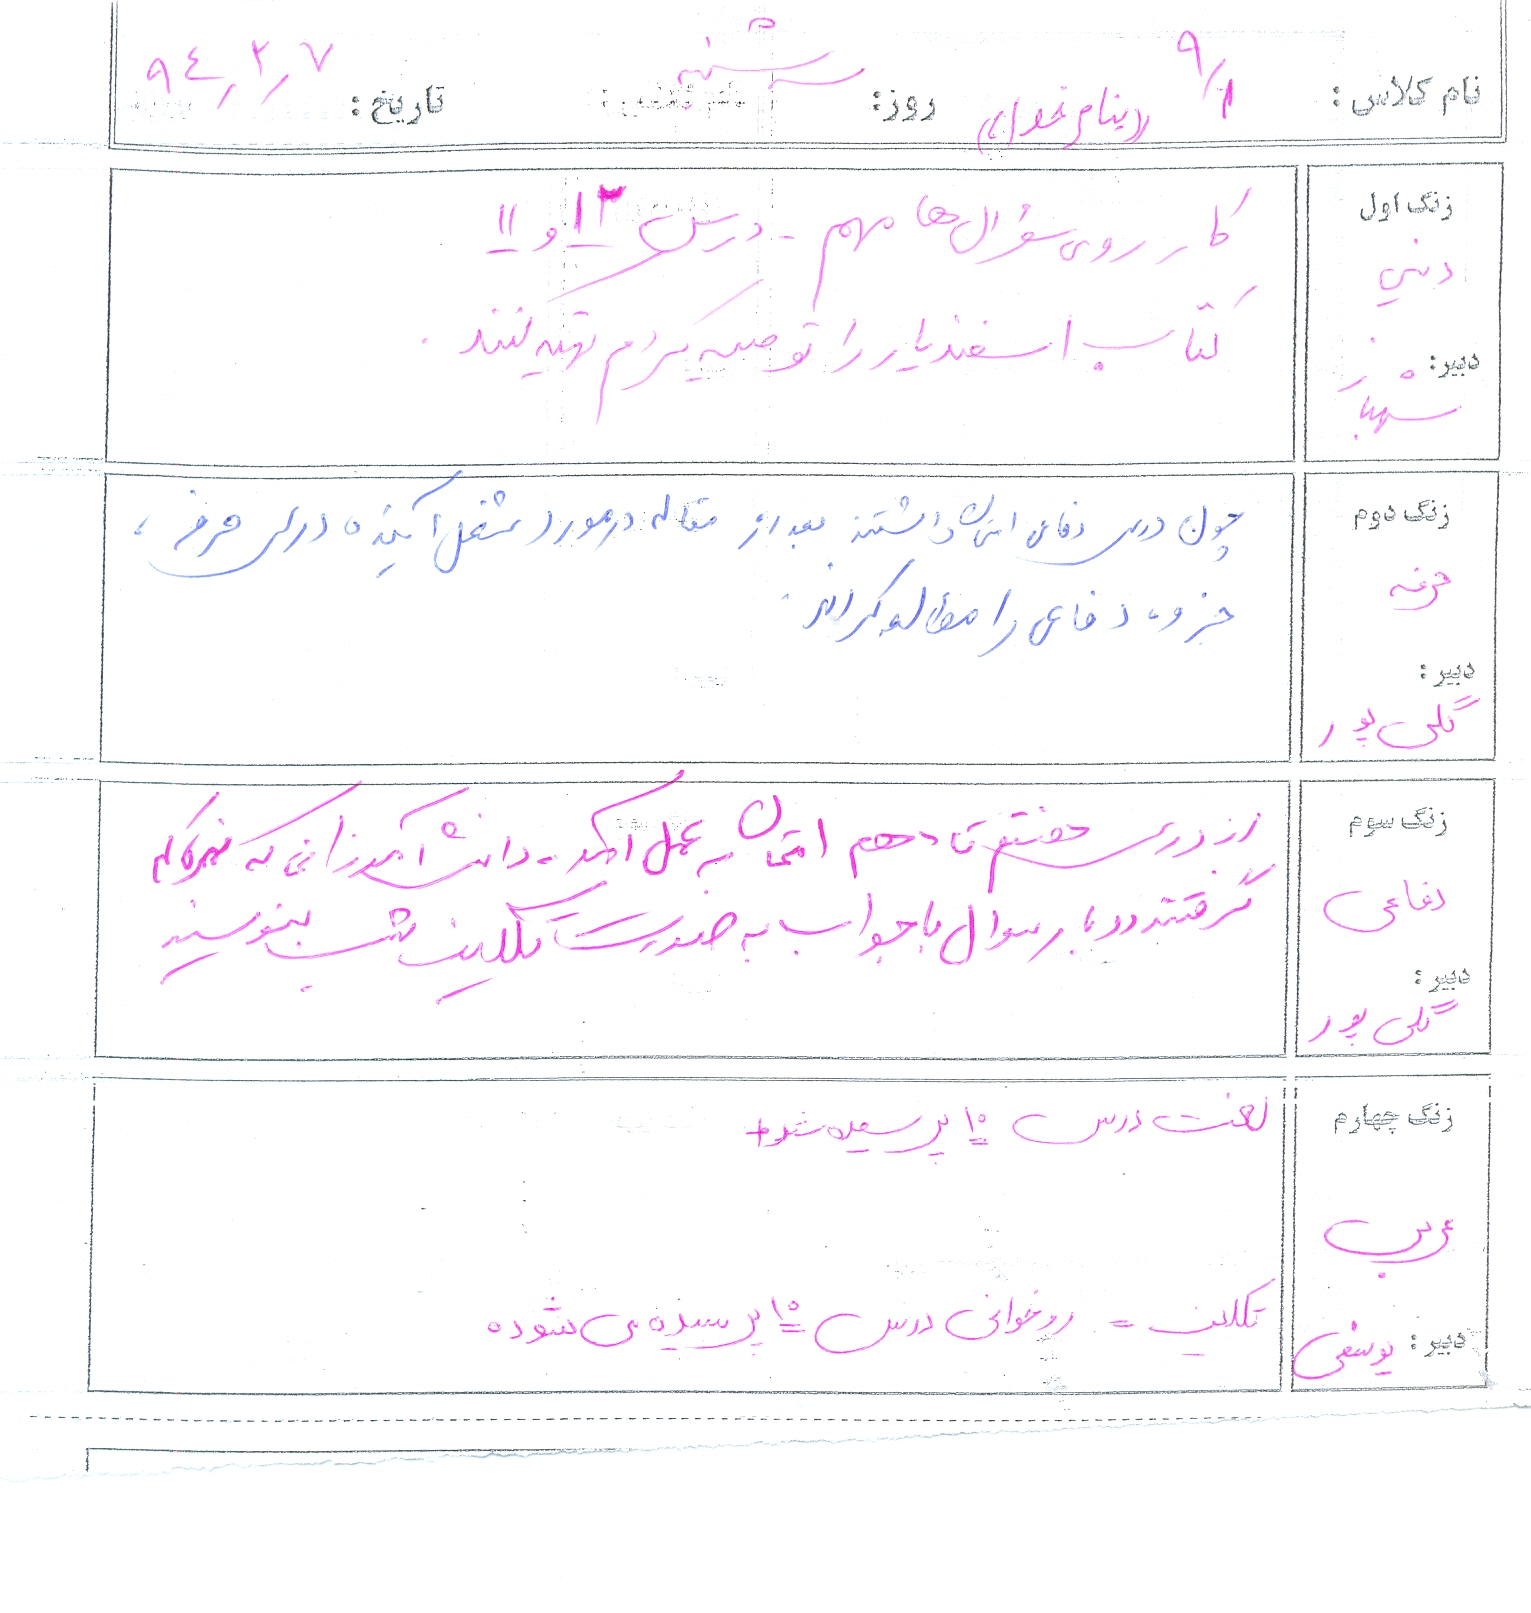 نام کلاس: ۹/۱ (بنام خدا) روز: سه شنبه تاریخ: ۹۴/۲/۷
زنگ اول
دینی
دبیر:
شهباز
کار روی سؤال ها مهم - درس ۱۲ و ۱۱
کتاب اسفندیار را توصیه کردم تهیه کنند.
زنگ دوم
حرفه
دبیر:
گلی پور
چون درس دفاعی امتحان داشتند بعد از مقاله در مورد شغل آینده درس حرفه،
جزوه دفاعی را مطالعه کردند.
زنگ سوم
دفاعی
دبیر:
گلی پور
از درس هفتم تا دهم امتحان به عمل آمد - دانش آموزانی که نمره کم
گرفتند دو بار سوال با جواب به صورت تکلیف شب بنویسند
زنگ چهارم
عربی
دبیر: یوسفی
لغت درس ۱۰ پرسیده شد
تکلیف = روخوانی درس ۱۰ پرسیده می شود